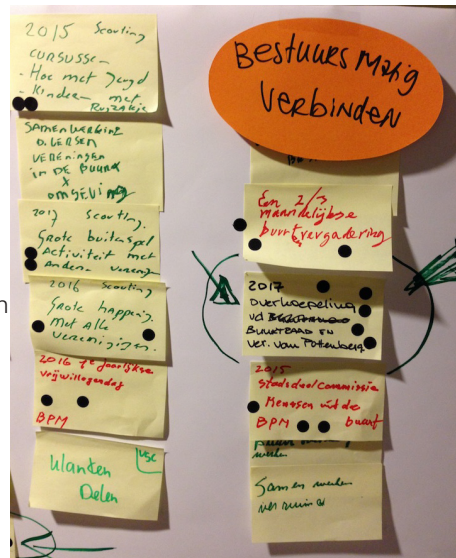 2015 Scouting
cursusse-
- Hoe met Jeugd
- Kinderen met
Rugzakje
SAMENWERKING
DIVERSEN
VERENINGEN
IN DE BUURT
X
OMGEVING
2017 Scouting.
Grote buitenspel
Activiteit met
Andere
2016 Scouting
Grote happening.
Met Alle
Verenigingen.
2016 1e Jaarlijkse
vrijwilligersdag
BPM
Klanten
Delen
n
BESTUURSMATIG
VERBINDEN
Een 2/3
maandelijkse
buurtvergadering
2017
OVERKOEPELING
vd
BUURTRAAD EN
ver. van Tuttenberg
2015
stadsdeelcommissie
Mensen uit de
BPM buurt
werken
Samen werken